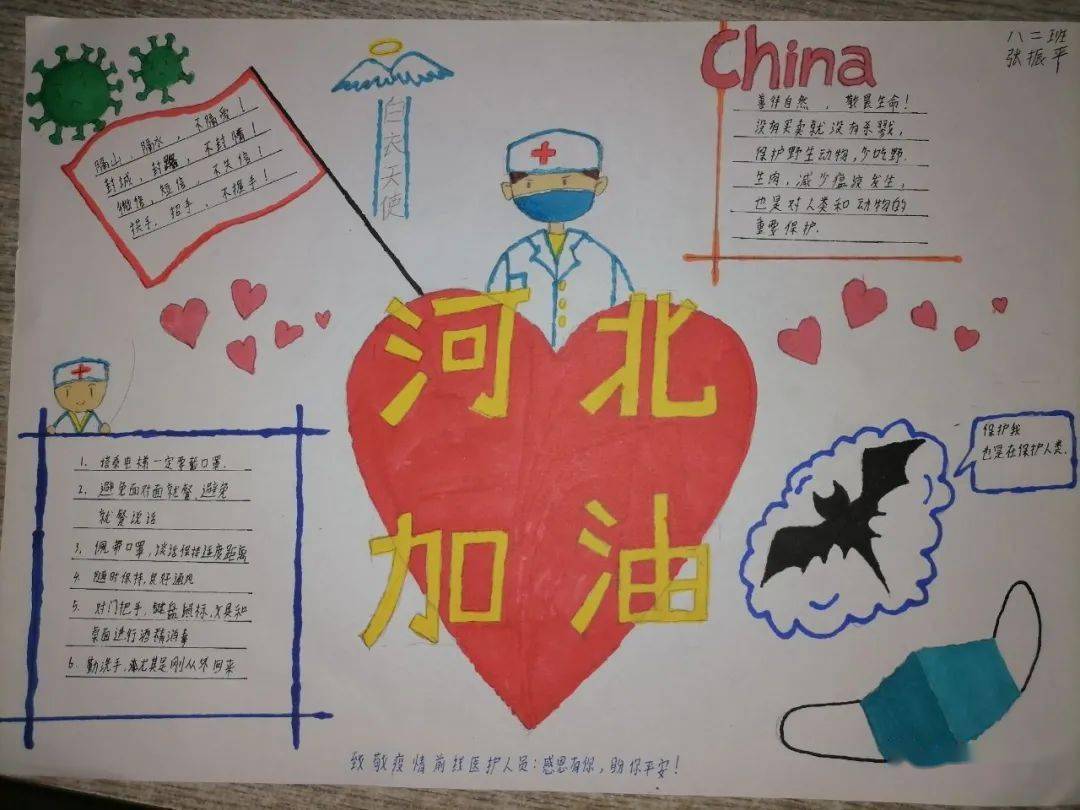 八二班
张振平
China
善待自然，敬畏生命！
没有买卖就没有杀戮，
保护野生动物，少吃野
生肉，减少瘟疫发生，
也是对人类和动物的
重要保护.
白衣天使
隔山、隔水，不隔爱！
封城，封路，不封情！
微信，短信，不失信！
挥手，招手，不握手！
河北
加油
1、搭乘电梯一定要戴口罩.
2、避免面对面就餐，避免
就餐说话
3、佩带口罩，谈话保持适度距离
4、随时保持良好通风
5、对门把手，键盘鼠标，文具和
桌面进行酒精消毒
6、勤洗手，尤其是刚从外回来
保护我
也是在保护人类.
致敬疫情前线医护人员：感恩有你，盼你平安！